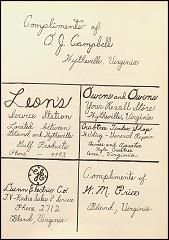 Compliments of
O. J. Campbell
Wytheville, Virginia
Leon's
Service Station
Located between
Bland and Wytheville
Gulf Products
Phone - 4493
Owens and Owens
Your Rexall Store
Wytheville, Virginia
Crabtree Tinker Shop
Welding - General Repair
Owner and Operator
Kyle Crabtree
Virginia
GE
Dunn Electric Co.
TV-Radio Sales & Service
Phone 2712
Bland, Virginia
Compliments of
H. M. Price
Bland, Virginia